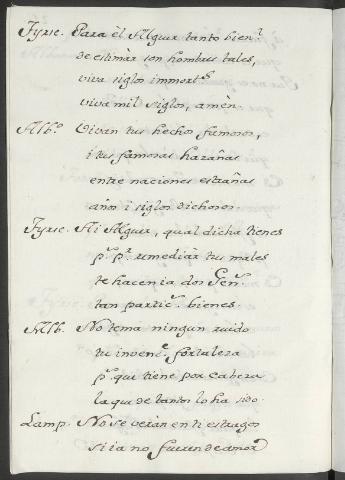 Tyrse. Para èl Alguer tanto bien?
de estimàr son hombres tales,
viva siglos immort.s
viva mil siglos, amèn.
Alb.o Vivan tus hechos famosos,
i tus famosas hazañas
entre naciones estrañas
años i siglos dichosos.
Tyrse. Ai Alguer, qual dicha tienes
p.s p.r remediàr tu males
te hacen ia dos Gen.s
tan partic.s bienes.
Alb. No tema ningun ruido
tu invenc.e fortaleza
p.s que tiene por cabeza
la que de tantos lo ha sido.
Lamp. No se veràn en ti estragos
si ia no fueren de amor